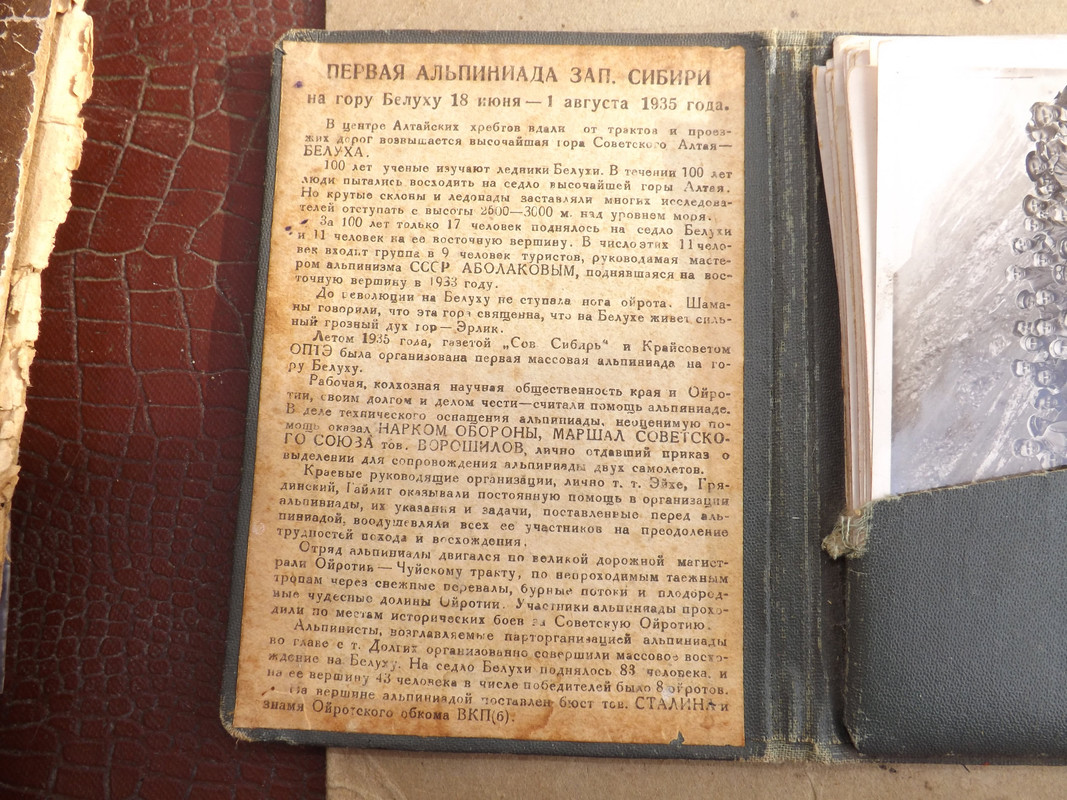 ПЕРВАЯ АЛЬПИНИАДА ЗАП. СИБИРИ
на гору Белуху 18 июня — 1 августа 1935 года.
В центре Алтайских хребтов вдали от трактов и проез-
жих дорог возвышается высочайшая гора Советского Алтая—
БЕЛУХА.
100 лет ученые изучают ледники Белухи. В течении 100 лет
люди пытались восходить на седло высочайшей горы Алтая.
Но крутые склоны и ледопады заставляли многих исследова-
телей отступать с высоты 2600—3000 м. над уровнем моря.
За 100 лет только 17 человек поднялось на седло Белухи
и 11 человек на ее восточную вершину. В число этих 11 чело-
век входит группа в 9 человек туристов, руководимая масте-
ром альпинизма СССР АБОЛАКОВЫМ, поднявшаяся на вос-
точную вершину в 1933 году.
До революции на Белуху не ступала нога ойрота. Шама-
ны говорили, что эта гора священна, что на Белухе живет силь-
ный грозный дух гор—Эрлик.
Летом 1935 года, газетой „Сов Сибирь“ и Крайсоветом
ОПТЭ была организована первая массовая альпиниада на го-
ру Белуху.
Рабочая, колхозная научная общественность края и Ойро-
тии, своим долгом и делом чести—считали помощь альпиниаде.
В деле технического оснащения альпиниады, неоценимую по-
мощь оказал НАРКОМ ОБОРОНЫ, МАРШАЛ СОВЕТСКО-
ГО СОЮЗА тов. ВОРОШИЛОВ, лично отдавший приказ о
выделении для сопровождения альпиниады двух самолетов.
Краевые руководящие организации, лично т. т. Эйхе, Гря-
динский, Гайлит оказывали постоянную помощь в организации
альпиниады, их указания и задачи, поставленные перед аль-
пиниадой, воодушевляли всех ее участников на преодоление
трудностей похода и восхождения.
Отряд альпиниады двигался по великой дорожной магист-
рали Ойротии — Чуйскому тракту, по непроходимым таежным
тропам через снежные перевалы, бурные потоки и плодород-
ные чудесные долины Ойротии. Участники альпиниады прохо-
дили по местам исторических боев за Советскую Ойротию.
Альпинисты, возглавляемые парторганизацией альпиниады
во главе с т. Долгих организованно совершили массовое восхо-
ждение на Белуху. На седло Белухи поднялось 83 человека, и
на ее вершину 43 человека в числе победителей было 8 ойротов.
На вершине альпиниадой поставлен бюст тов. СТАЛИНА и
знамя Ойротского обкома ВКП(б).